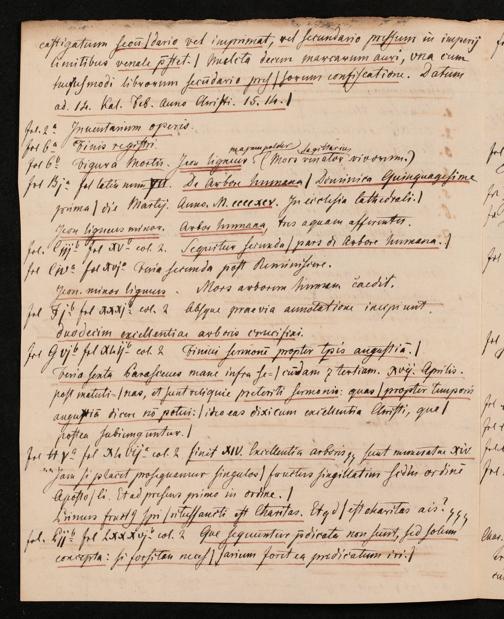 castigatum secun/dario vel imprimat, vel secundario pressum in imperij
limitibus venale pstet. / Mulcta decem marcarum auri, vna cum
huiusmodi librorum secundario pres/sorum confiscatione. Datum
ad. 14. Kal. Feb. Anno Christi. 15.14. /
fol. 2a Inuentarium operis.
fol 6a Finis registri
fol 6b Figura Mortis. (Mors venator vivorum.)
fol De Arbore humana / Dominica Quinquagesime
prima / die Martij Anno. M.ccccxcv. In ecclesia Cathedrali. /
Jeon ligneus minor. Arbor humana, tres aquam afferentes.
fol. Ciijb fol XVb col. 2 Sequitur secunda / pars di Arbore humana. /
fol Civa fol xvja Feria secunda post Reminiscere.
minor ligneus. Mors arborem humanam caedit.
fol Fjb fol XXXjb col. 2 Absque praevia annotatione incipiunt
duodecim excellentiae arboris crucifixi.
fol Gvjb fol Xlijb col. 2 Finiui sermonem propter tpis angustiam. /
Feria sexta Parasceues mane infra se-/cundam 7 tertiam. xvij. Aprilis.
post matuti-/nas, et sunt reliquie preteriti sermonis: quas / propter temporis
angustiã dicere nõ potui: / ideo eas dixi cum excellentia Christi, que /
postea subiunguntur. /
fol col 2 finis XIV. Excellentia arboris, sunt numeratae xiv
Jam si placet prosequamur singulos / fructus singillatim ordinẽ
Aposto/li. Et ad prescens primo in ordine. /
Primus fruct9 spi/ritussancti est Charitas. Et qd / est charitas ais?
fol. col. 2 Que sequuntur pdicata non sunt, sed solum
concepta: si forsitan neces/sarium foret ea predicatum iri: /